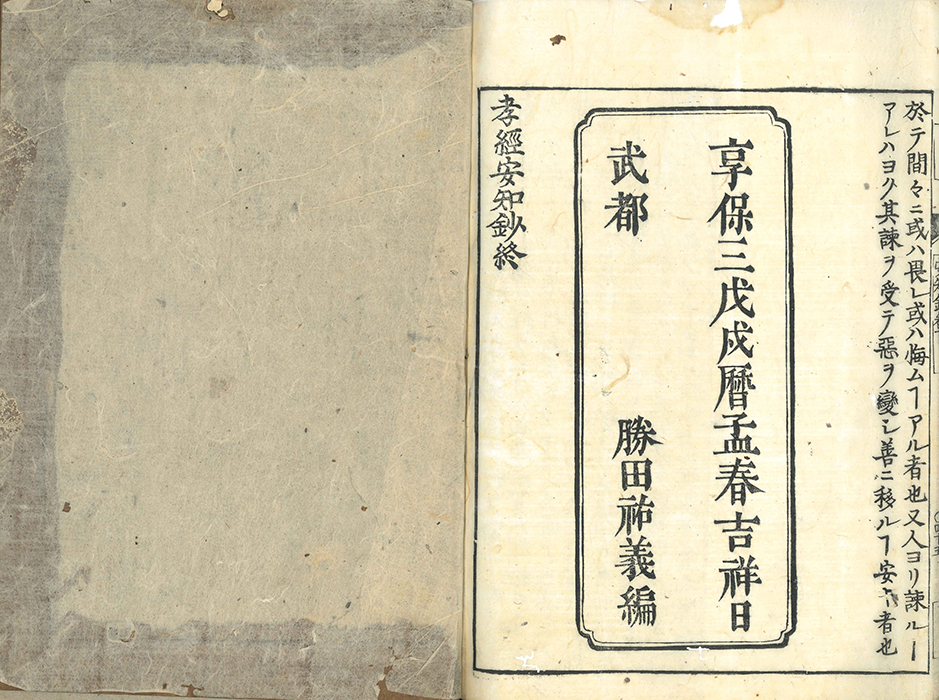 於テ間々ニ或ハ畏レ或ハ悔ムヿアル者也又人ヨリ諫ルヿ
アレハヨク其諫ヲ受テ惡ヲ變シ善ニ移ルヿ安キ者也
享保三戊戌暦孟春吉祥日
武都 勝田祐義編
孝經安知鈔終